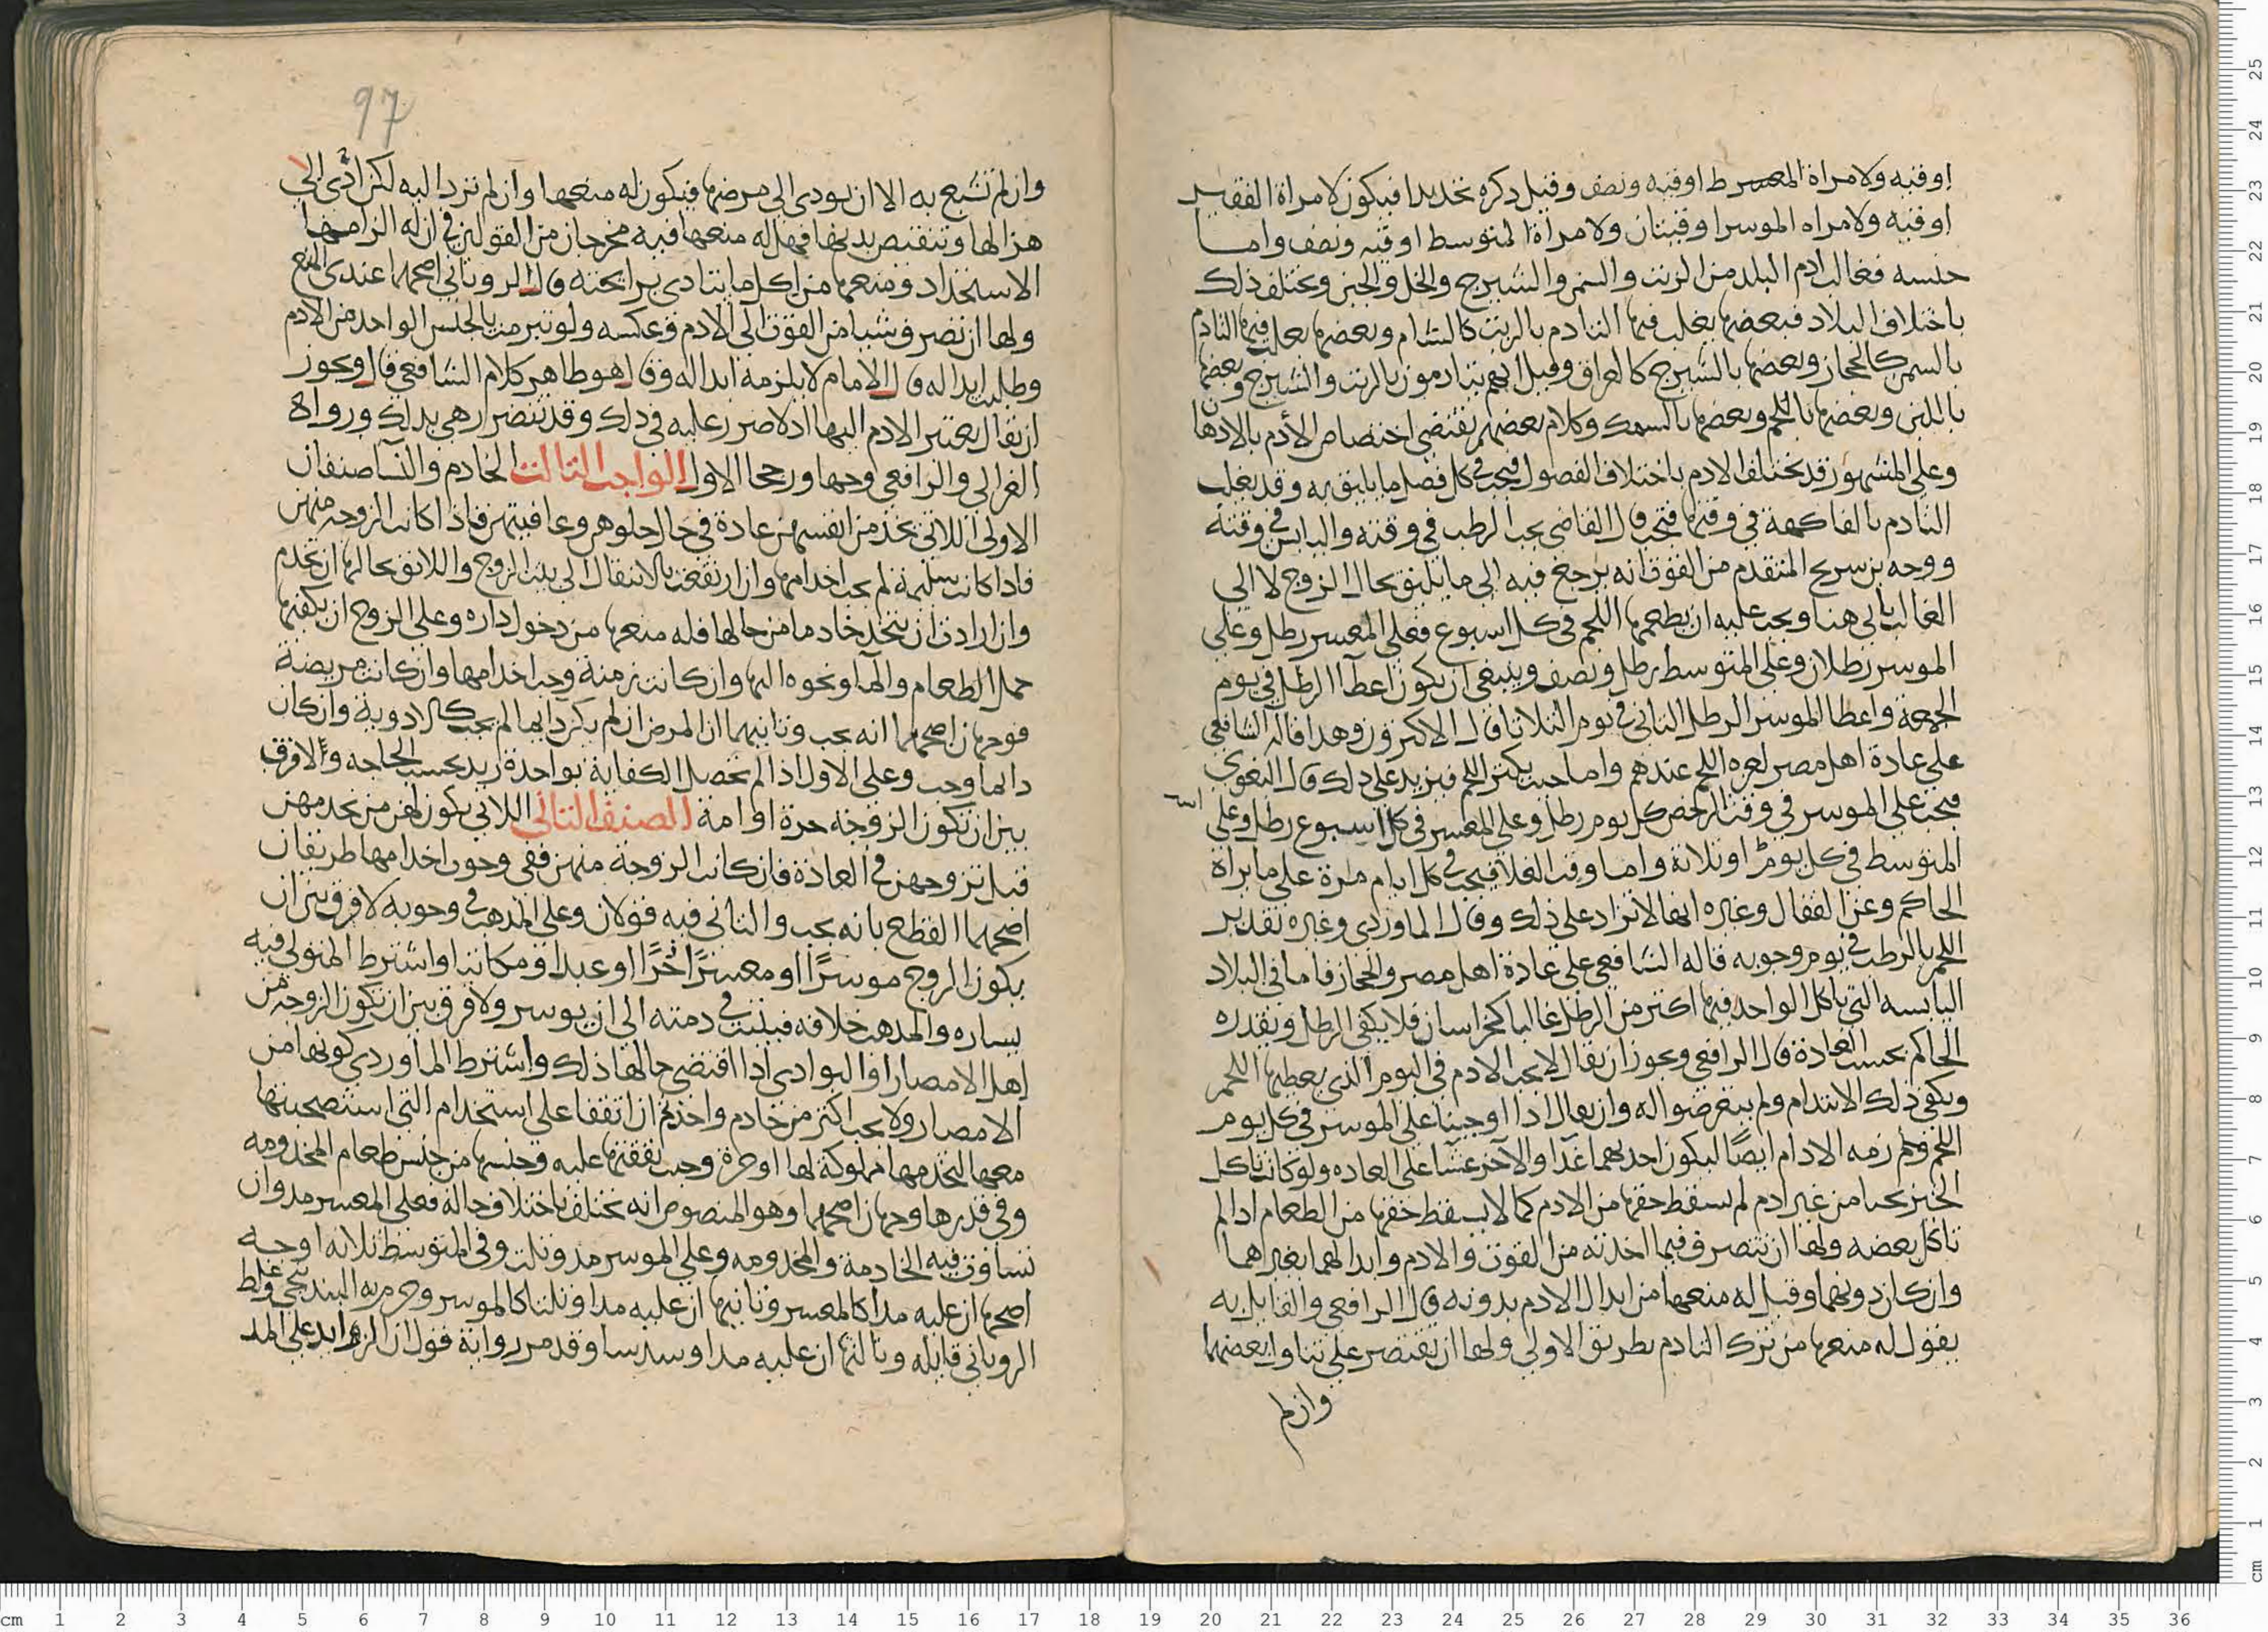 اوقيه ولامراة المعسر ط اوقيه ونصف وقيل ذكره تحديدا فيكون لامراة الفقير
اوقيه ولامراه الموسر اوقيتان ولامراة المتوسط اوقيه ونصف واما
جنسه فغالب ادم البلد من الزيت والسمن والشيرج والخل والجبن ويختلف ذلك
باختلاف البلاد فبعضها يغلب فيها التادم بالزيت كالشام وبعضها يغلب فيها التادم
بالسمن كالحجاز وبعضها بالشيرج كالعراق وقيل انهم يتادمون بالزيت والشيرج وبعضها
باللبن وبعضها باللحم وبعضها بالسمك وكلام بعضهم يقتضي اختصاص الأدم بالادهان
وعلى المشهور قد يختلف الادم باختلاف الفصول فيجب في كل فصل ما يليق به وقد يغلب
التادم بالفاكهة في وقتها فتجب قال القاضي يجب الرطب في وقته واليابس في وقته
ووجه بن سريج المتقدم من القوت انه يرجع فيه الى ما يليق بحال الزوج لا الى
الغالب ياتي هنا ويجب عليه ان يطعمها اللحم في كل اسبوع فعلى المعسر رطل وعلى
الموسر رطلان وعلى المتوسط رطل ونصف وينبغي ان يكون اعطاا الرطل في يوم
الجمعة واعطا الموسر الرطل الثاني في يوم الثلاثا قال الاكثرون وهذا قاله الشافعي
على عادة اهل مصر لعزه اللحم عندهم واما حيث يكثر اللحم فيزيد على ذلك قال البغوي
فيجب على الموسر في وقت الرخص كل يوم رطل وعلى المعسر في كل اسبوع رطل وعلى
المتوسط في كل يومين او ثلاثة واما وقت الغلا فيجب في كل ايام مرة على ما يراه
الحاكم وعن القفال وغيره انها لا تزاد على ذلك وقال الماوردي وغيره تقدير
اللحم بالرطب في يوم وجوبه قاله الشافعي على عادة اهل مصر والحجاز فاما في البلاد
اليابسه التي ياكل الواحد فيها اكثر من الرطل غالبا كخراسان فلا يكفي الرطل ويقدره
الحاكم بحسب العادة قال الرافعي ويجوز ان يقال لا يجب الادم في اليوم الذي يعطيها اللحم
ويكفي ذلك الايتدام ولم يتعرضوا له وان يقال اذا اوجبنا على الموسر في كل يوم
اللحم ولم زمه الادام ايضًا ليكون احدهما غدا والآخر عشا على العاده ولو كانت تاكل
الخبز بحتا من غير ادم لم يسقط حقها من الادم كما لا يسقط حقها من الطعام اذا لم
تاكل بعضه ولها ان تتصرف فيما اخذته من القوت والادم وابدالهما بغيرهما
وان كان دونهما وقيل له منعها من ابدال الادم بدونه قال الرافعي والقايل به
يقول له منعها من ترك التادم بطريق الاولى ولها ان تقتصر على تناول بعضها
وان لم
97
وان لم تشبع به الا ان يودي الى مرضها فيكون له منعها وان لم ترد اليه لكن ادى الى
هزالها وتنقيص بدنها فهل له منعها فيه مخرجان من القولين في ان له الزامها
الاستحداد ومنعها من اكل ما يتاذى برائحته قال الروياني اصحهما عندي المنع
ولها ان تصرف شيا من القوت الى الادم وعكسه ولو تبرمت بالجنس الواحد من الادم
وطلبت ابداله قال الامام لا يلزمه ابداله وقال هو ظاهر كلام الشافعي قال ويجوز
ان يقال يعتبر الادم اليها اذ لا ضرر عليه في ذلك وقد تتضرر هي بذلك ورواه
الغزالي والرافعي وجها ورجحا الاول الواجب الثالث الخادم والنسا صنفان
الاولى اللاتي يخدمن انفسهن عادة في حال خلوهن وعافيتهن فاذا كانت الزوجة منهن
فاذا كانت سليمة لم يجب اخدامها وان ارتفعت بالانتقال الى بيت الزوج واللائق بحالها ان تخدم
وان ارادت ان تتخذ خادما من مالها فله منعها من دخول داره وعلى الزوج ان يكفيها
حمل الطعام والما ونحوه اليها وان كانت زمنة وجب اخدامها وان كانت مريضة
فوجهان اصحهما انه يجب وثانيهما ان المرض ان لم يكن دايما لم يجب كالادوية وان كان
دايما وجب وعلى الاول اذا لم تحصل الكفاية بواحدة زيد بحسب الحاجه ولافرق
بين ان تكون الزوجة حرة او امة الصنف الثاني اللاتي يكون لهن من يخدمهن
قبل تزوجهن في العادة فان كانت الزوجة منهن ففي وجوب اخدامها طريقان
اصحهما القطع بانه يجب والثاني فيه قولان وعلى المذهب في وجوبه لا فرق بين ان
يكون الزوج موسرًا او معسرًا حرًا او عبدا ومكاتبا واشترط المتولي فيه
يساره والمذهب خلافه فيثبت في ذمته الى ان يوسر ولا فرق بين ان تكون الزوجة من
اهل الامصار او البوادي اذا اقتضى حالها ذلك واشترط الماوردي كونها من
الامصار ولا يجب اكثر من خادم واحد ثم ان اتفقا على استخدام التي استصحبتها
معها لتخدمها مملوكة لها او حرة وجب نفقتها عليه وجنسها من جنس طعام المخدومه
وفي قدرها وجهان اصحهما وهو المنصوص انه يختلف باختلاف حاله فعلى المعسر مد وان
تساوت فيه الخادمة والمخدومه وعلى الموسر مد وثلث وفي المتوسط ثلاثه اوجه
اصحها ان عليه مدا كالمعسر وثانيها ان عليه مدا وثلثا كالموسر وجزم به البندنيجي وغلط
الروياني قايله وثالثها ان عليه مدا وسدسا وقد مر رواية قول ان الزايد على المد